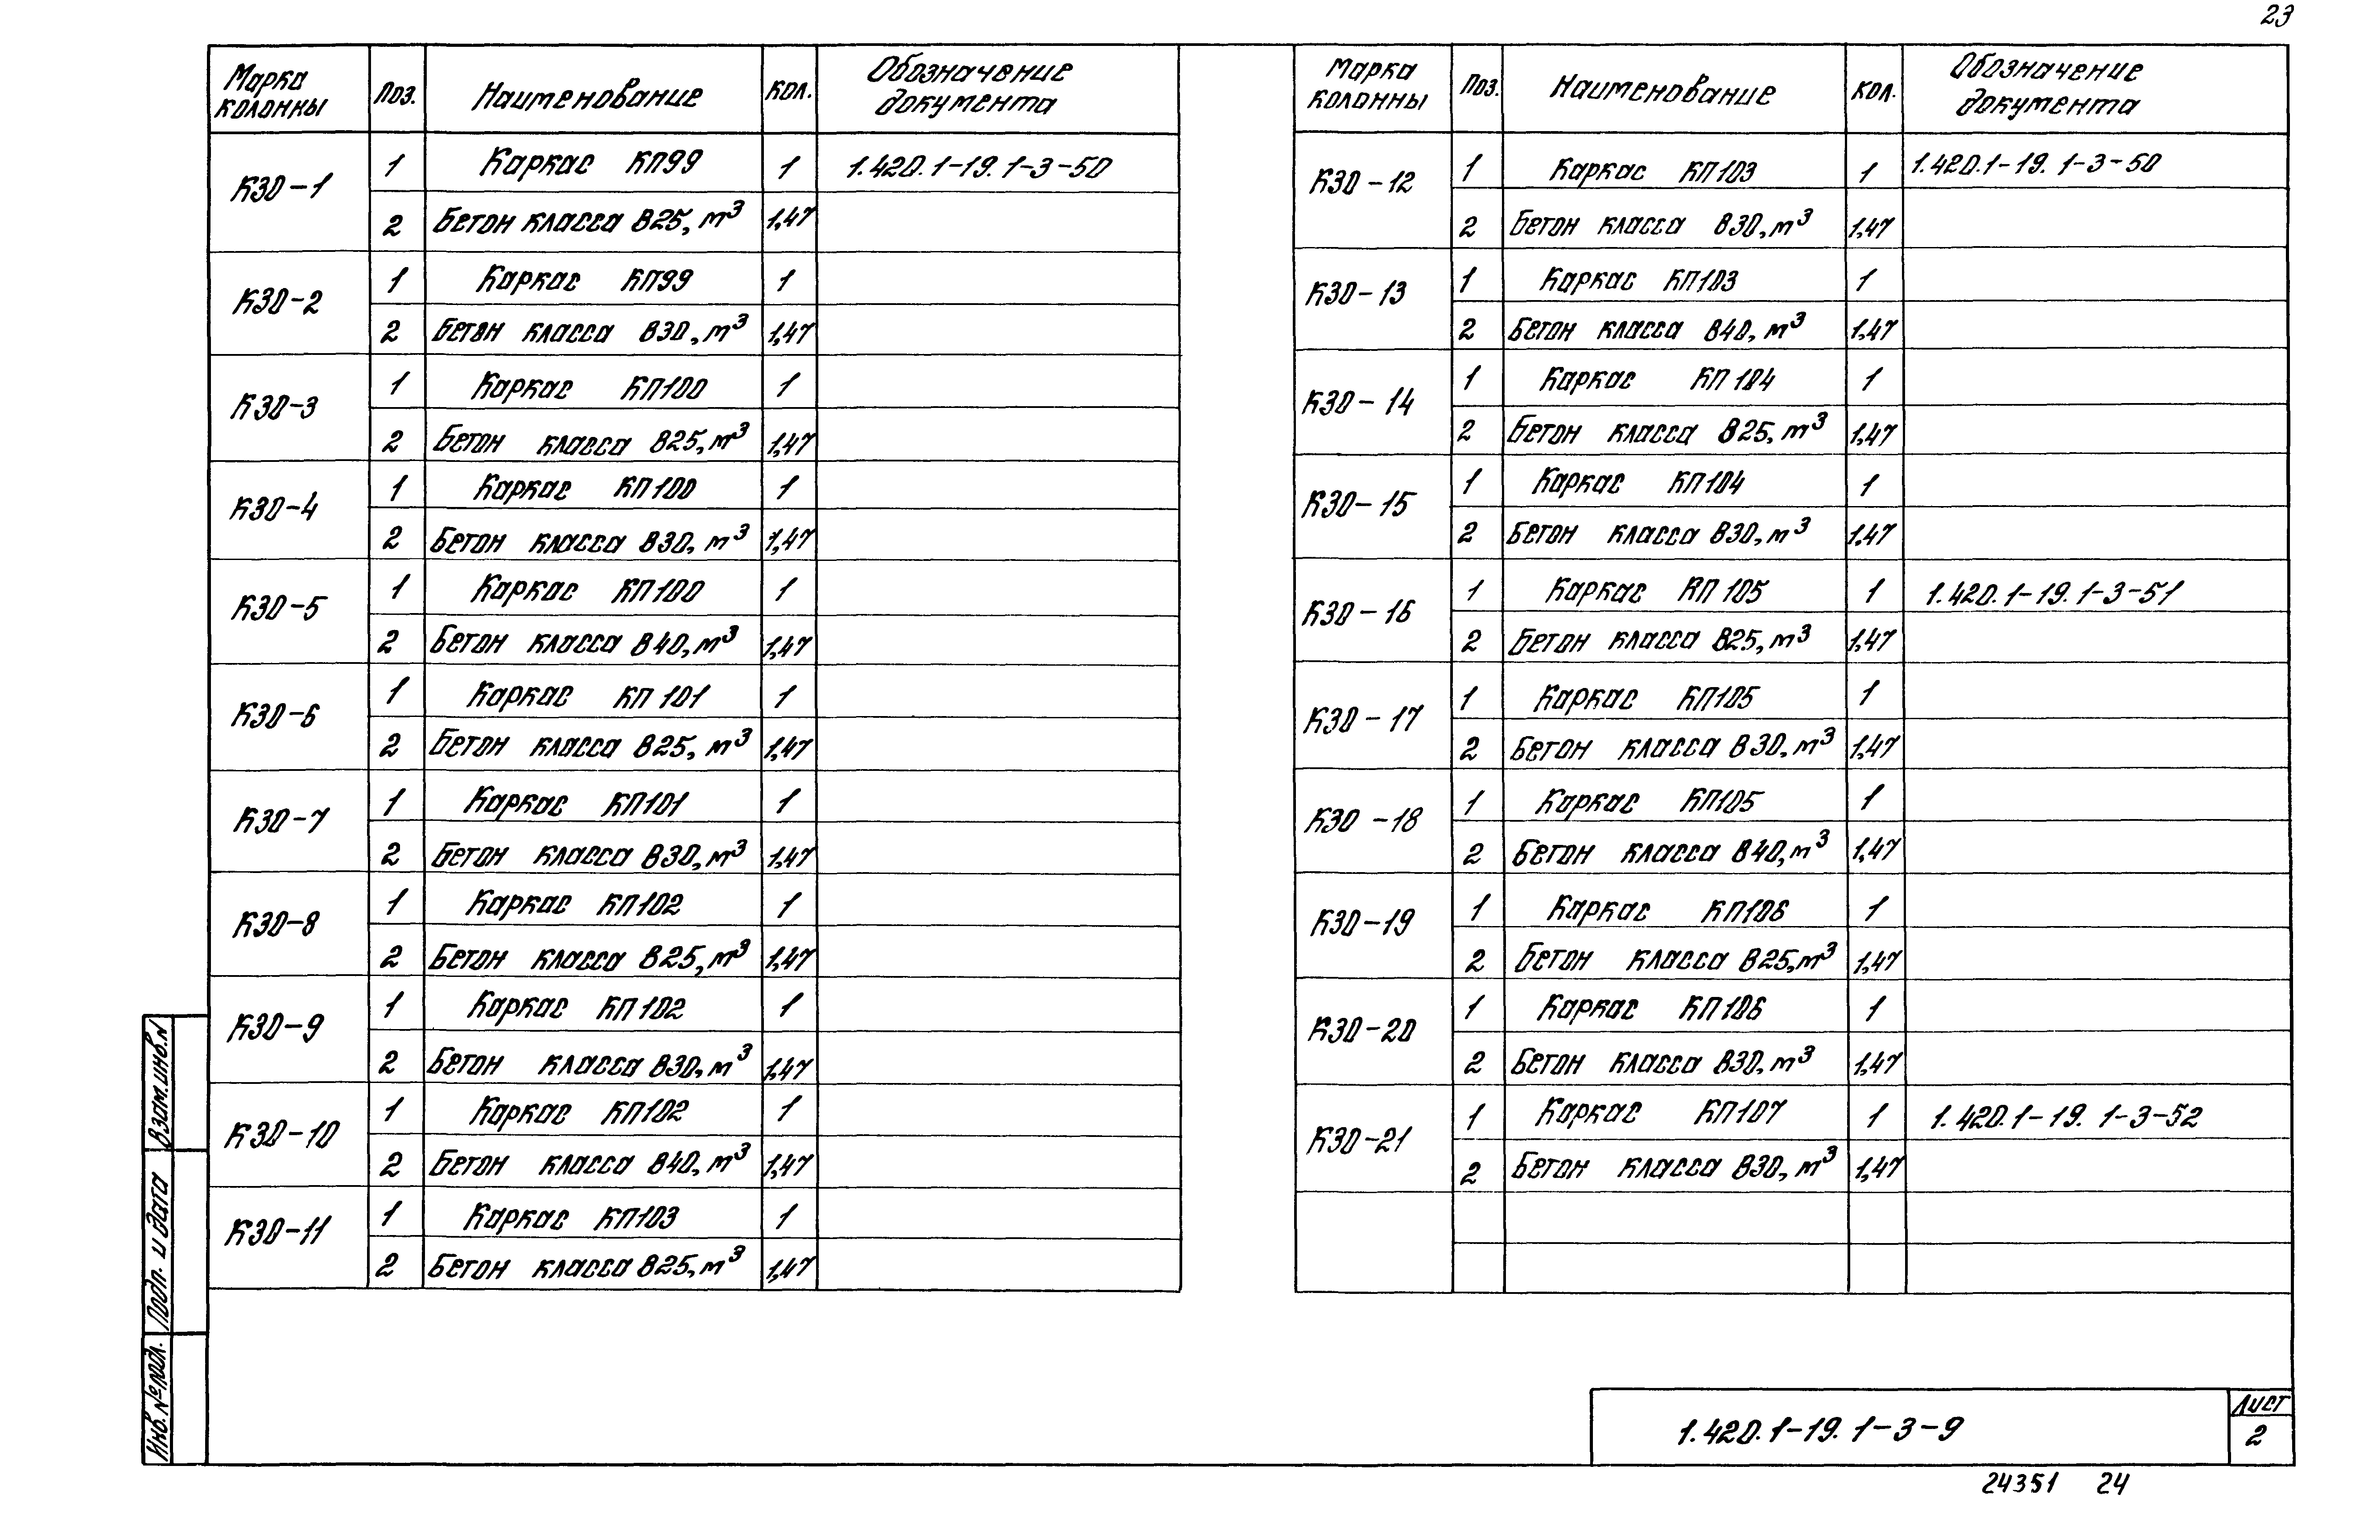 23
Марка колонны Поз. Наименование Кол. Обозначение документа
К30-1 1 Каркас КП99 1 1.420.1-19.1-3-50
2 Бетон класса В25, м³ 1,47
К30-2 1 Каркас КП99 1
2 Бетон класса В30, м³ 1,47
К30-3 1 Каркас КП100 1
2 Бетон класса В25, м³ 1,47
К30-4 1 Каркас КП100 1
2 Бетон класса В30, м³ 1,47
К30-5 1 Каркас КП100 1
2 Бетон класса В40, м³ 1,47
К30-6 1 Каркас КП 101 1
2 Бетон класса В25, м³ 1,47
К30-7 1 Каркас КП101 1
2 Бетон класса В30, м³ 1,47
К30-8 1 Каркас КП102 1
2 Бетон класса В25, м³ 1,47
К30-9 1 Каркас КП102 1
2 Бетон класса В30, м³ 1,47
К30-10 1 Каркас КП102 1
2 Бетон класса В40, м³ 1,47
К30-11 1 Каркас КП103 1
2 Бетон класса В25, м³ 1,47
Марка колонны Поз. Наименование Кол. Обозначение документа
К30-12 1 Каркас КП103 1 1.420.1-19.1-3-50
2 Бетон класса В30, м³ 1,47
К30-13 1 Каркас КП103 1
2 Бетон класса В40, м³ 1,47
К30-14 1 Каркас КП104 1
2 Бетон класса В25, м³ 1,47
К30-15 1 Каркас КП104 1
2 Бетон класса В30, м³ 1,47
К30-16 1 Каркас КП105 1 1.420.1-19.1-3-51
2 Бетон класса В25, м³ 1,47
К30-17 1 Каркас КП105 1
2 Бетон класса В30, м³ 1,47
К30-18 1 Каркас КП105 1
2 Бетон класса В40, м³ 1,47
К30-19 1 Каркас КП106 1
2 Бетон класса В25, м³ 1,47
К30-20 1 Каркас КП106 1
2 Бетон класса В30, м³ 1,47
К30-21 1 Каркас КП107 1 1.420.1-19.1-3-52
2 Бетон класса В30, м³ 1,47
Взам.инв.N
Подп. и дата
Инв.№подл.
1.420.1-19.1-3-9
Лист
2
24351 24